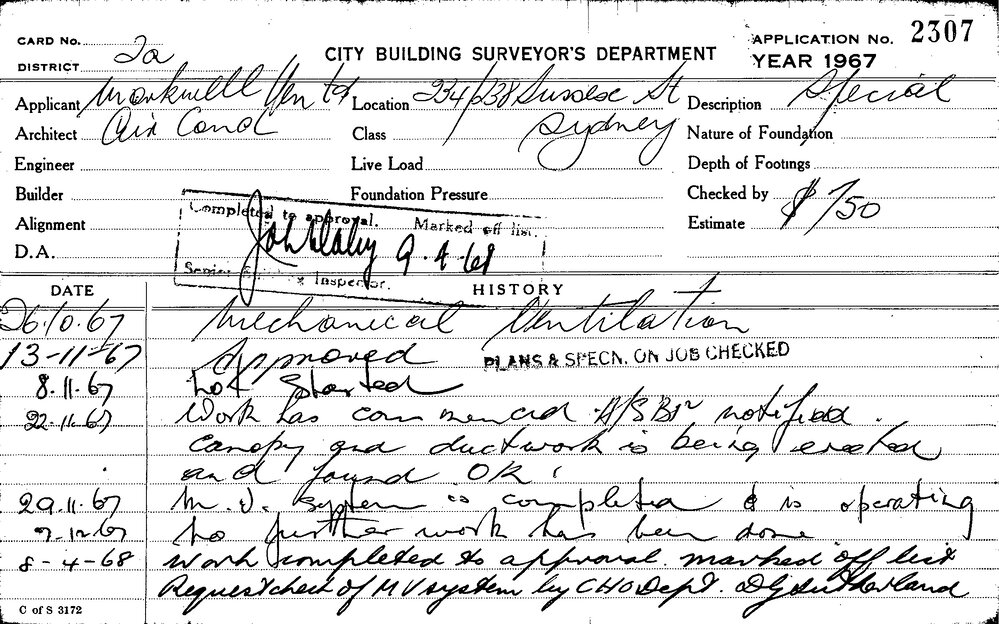 CARD No. 2a
DISTRICT
CITY BUILDING SURVEYOR'S DEPARTMENT
APPLICATION No. 2307
YEAR 1967
Applicant Markwell Ven td Location 234/238 Sussex St Description Special
Architect Air Cond Class Sydney Nature of Foundation
Engineer Live Load Depth of Footings
Builder Foundation Pressure Checked by
Alignment Estimate $ 750
D.A.
Completed to approval. Marked off list.
9.4.68
Inspector.
DATE HISTORY
26.10.67 Mechanical Ventilation
13-11-67 Approved PLANS & SPECN. ON JOB CHECKED
8.11.67 Not Started
22.11.67 Work has commenced notified.
Canopy and ductwork is being erected
and found OK
29.11.67 M.V. System is completed & is operating
7-12-67 No further work has been done
8-4-68 Work completed to approval. marked off list
Request check of MV system by CHO Dept. DJ Sutherland
C of S 3172